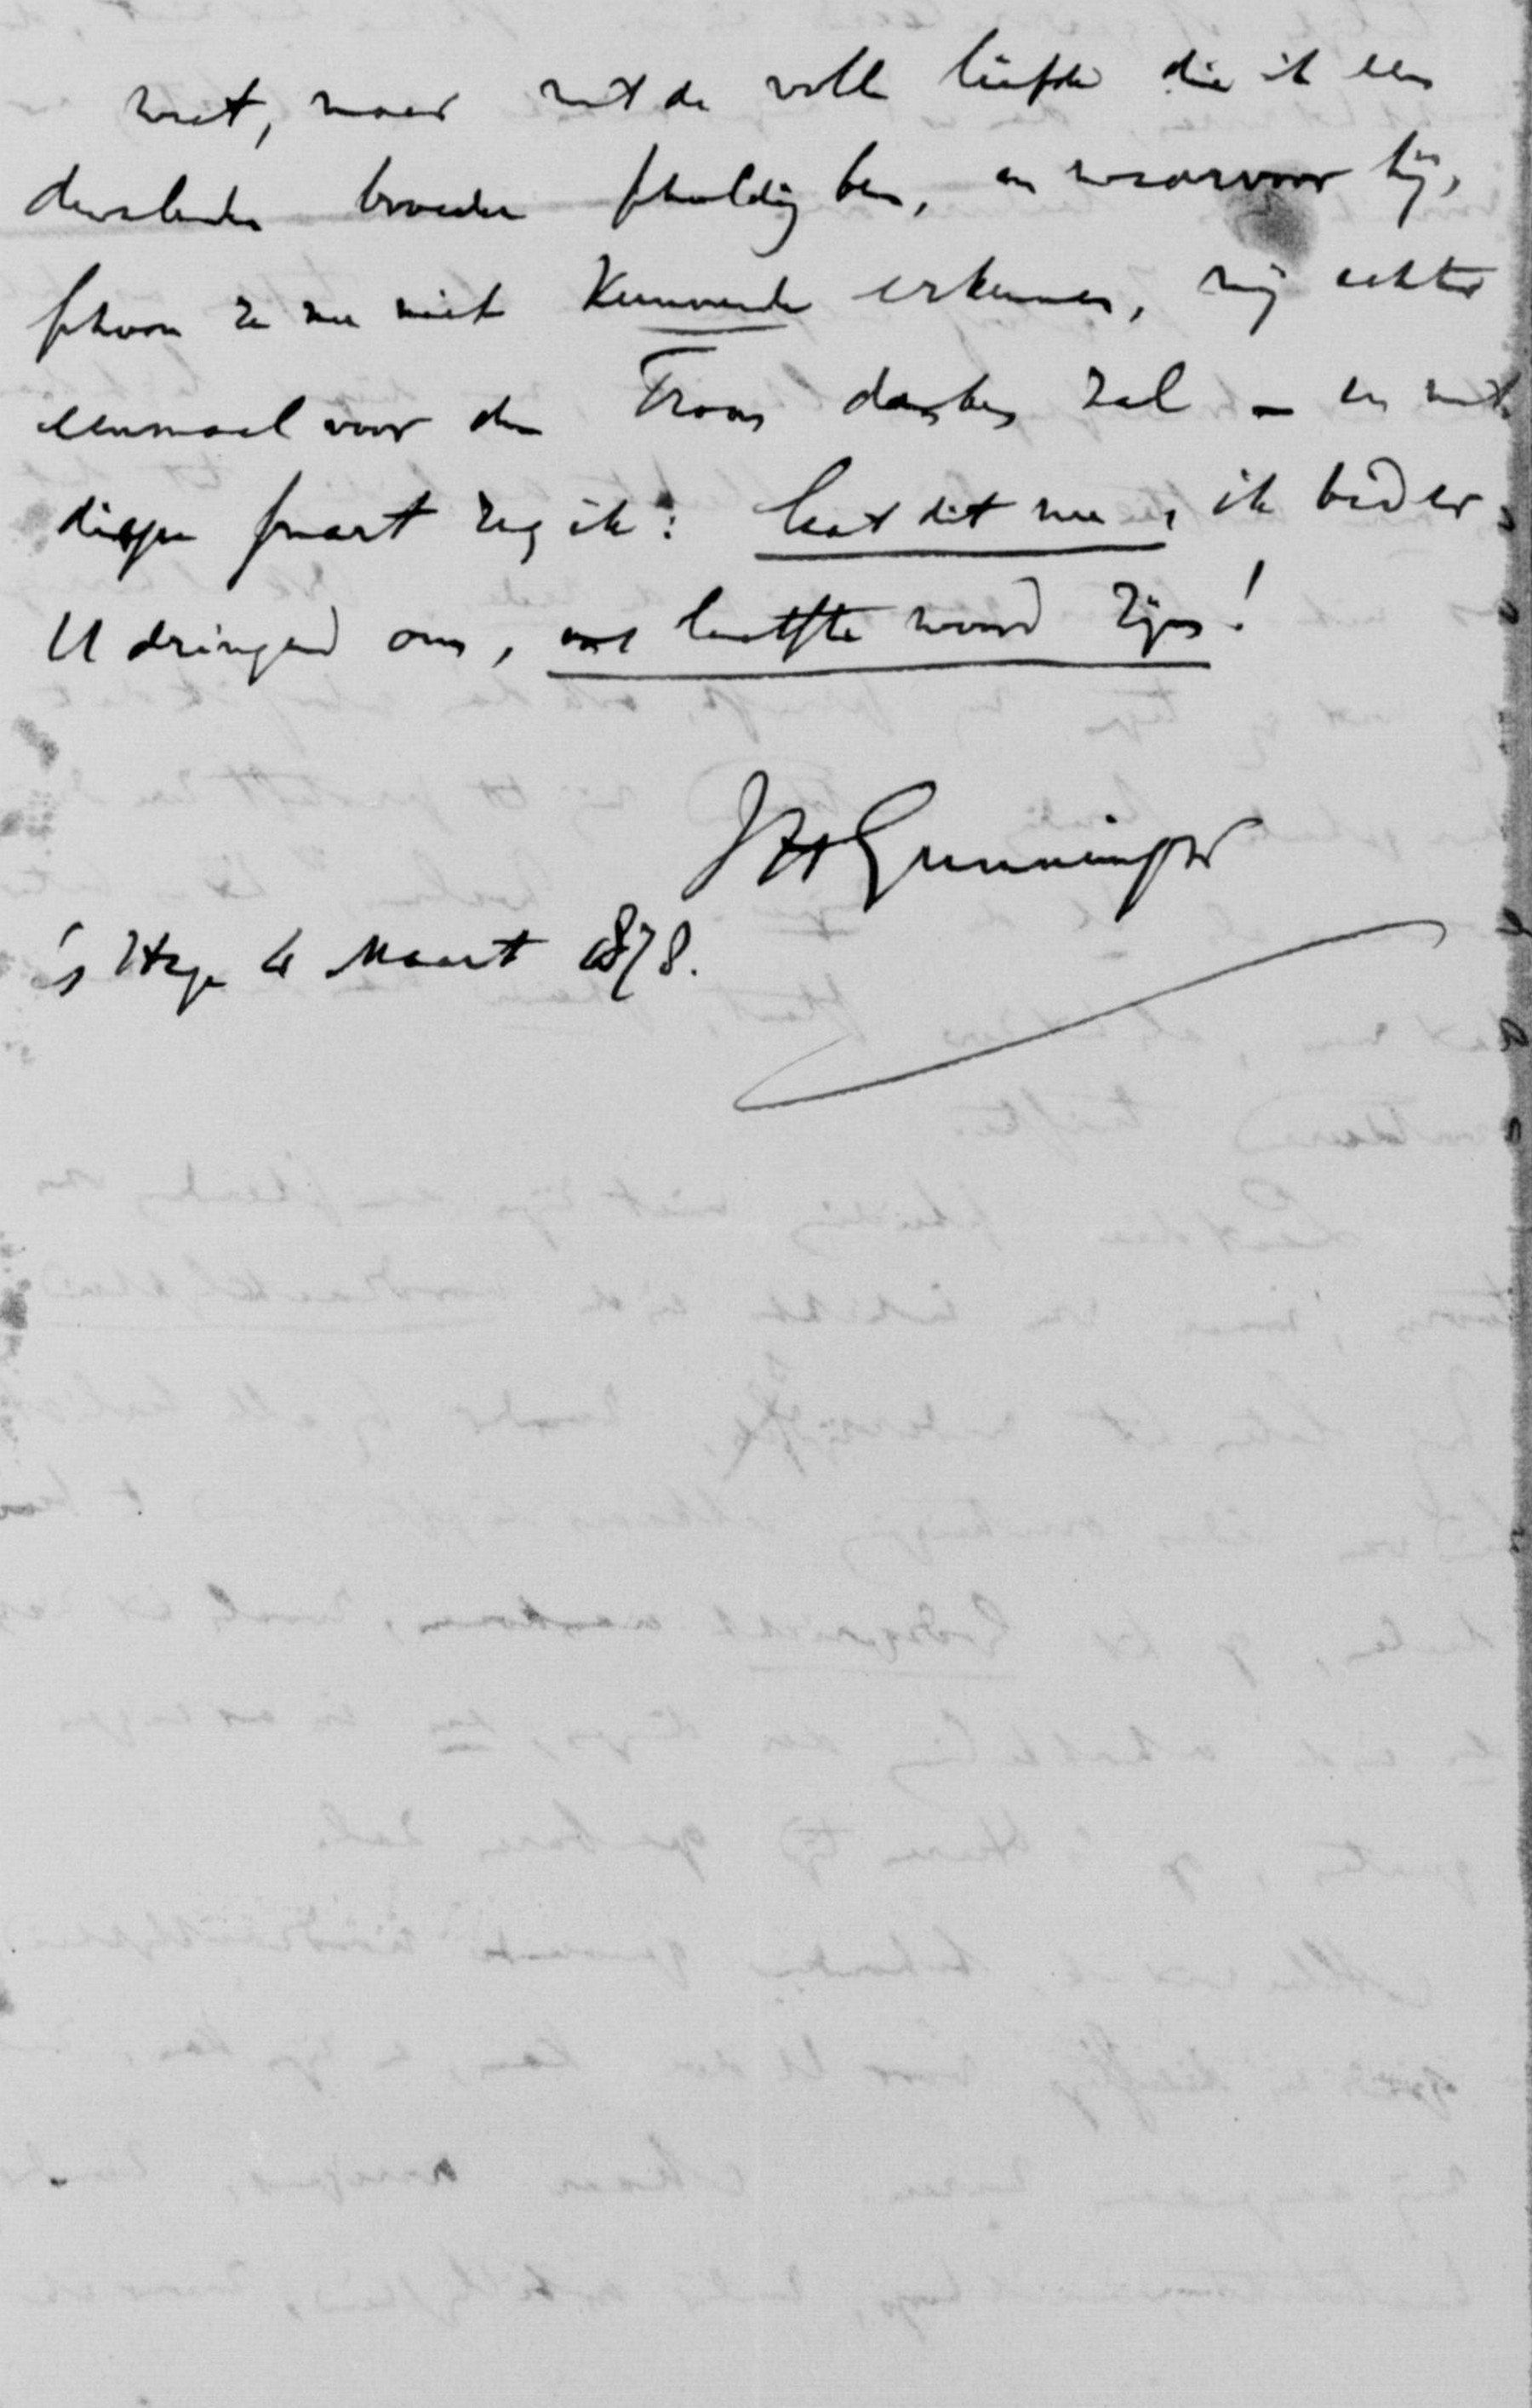 weet, maar met de volle liefde die ik een
dwalenden broeder schuldig ben, en waarvoor hij,
schoon ze nu niet kunnende erkennen, mij echter
eenmaal voor den Troon danken zal – en met
diepe smart zeg ik: laat dit nu, ik bid er
U dringend om, ons laatste woord zijn!
JHGunning Jr
's Hage 4 Maart 1878.